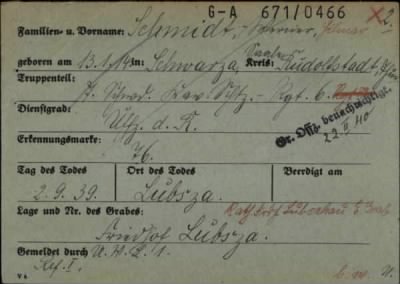 G-A 671/0466
2.
Familien- u. Vorname: Schmidt, Werner, Hilmar
geboren am 13.1.14 in Schwarza, Saale Kreis: Rudolstadt,
Truppenteil: Kav. Schtz.- Rgt. 6.
Dienstgrad: Uffz. d. R.
Gr. Offz. benachrichtigt.
22. II 40
Erkennungsmarke: 76.
Tag des Todes Ort des Todes Beerdigt am
2.9.39. Lubsza.
Lage und Nr. des Grabes: Kath. Frdf. Lubschau
Friedhof Lubsza.
Gemeldet durch
Ref. I.
V 6
b. w. N.